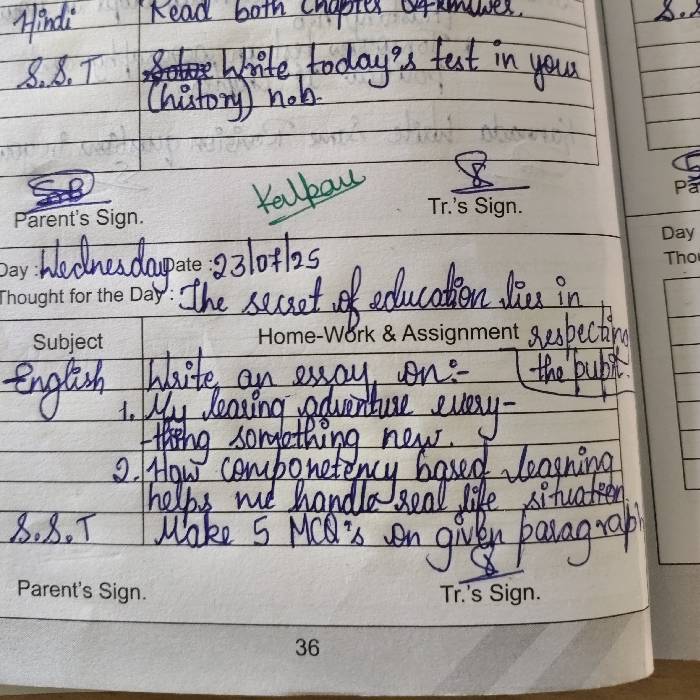 Hindi Read both Chapter
S.S.T Write today's test in your
(history) n.b.
Parent's Sign.
Kalpau
Tr.'s Sign.
Day : Wednesday Date : 23/07/25
Thought for the Day : The secret of education lies in
respecting
the pupil.
Subject Home-Work & Assignment
English Write an essay on:-
1. My learing adventure every-
-thing somothing new.
2. How componetency based learning
helps me handle real life situation
S.S.T Make 5 MCQ's on given paragraph
Parent's Sign.
Tr.'s Sign.
36
S.S
Pa
Day
Tho